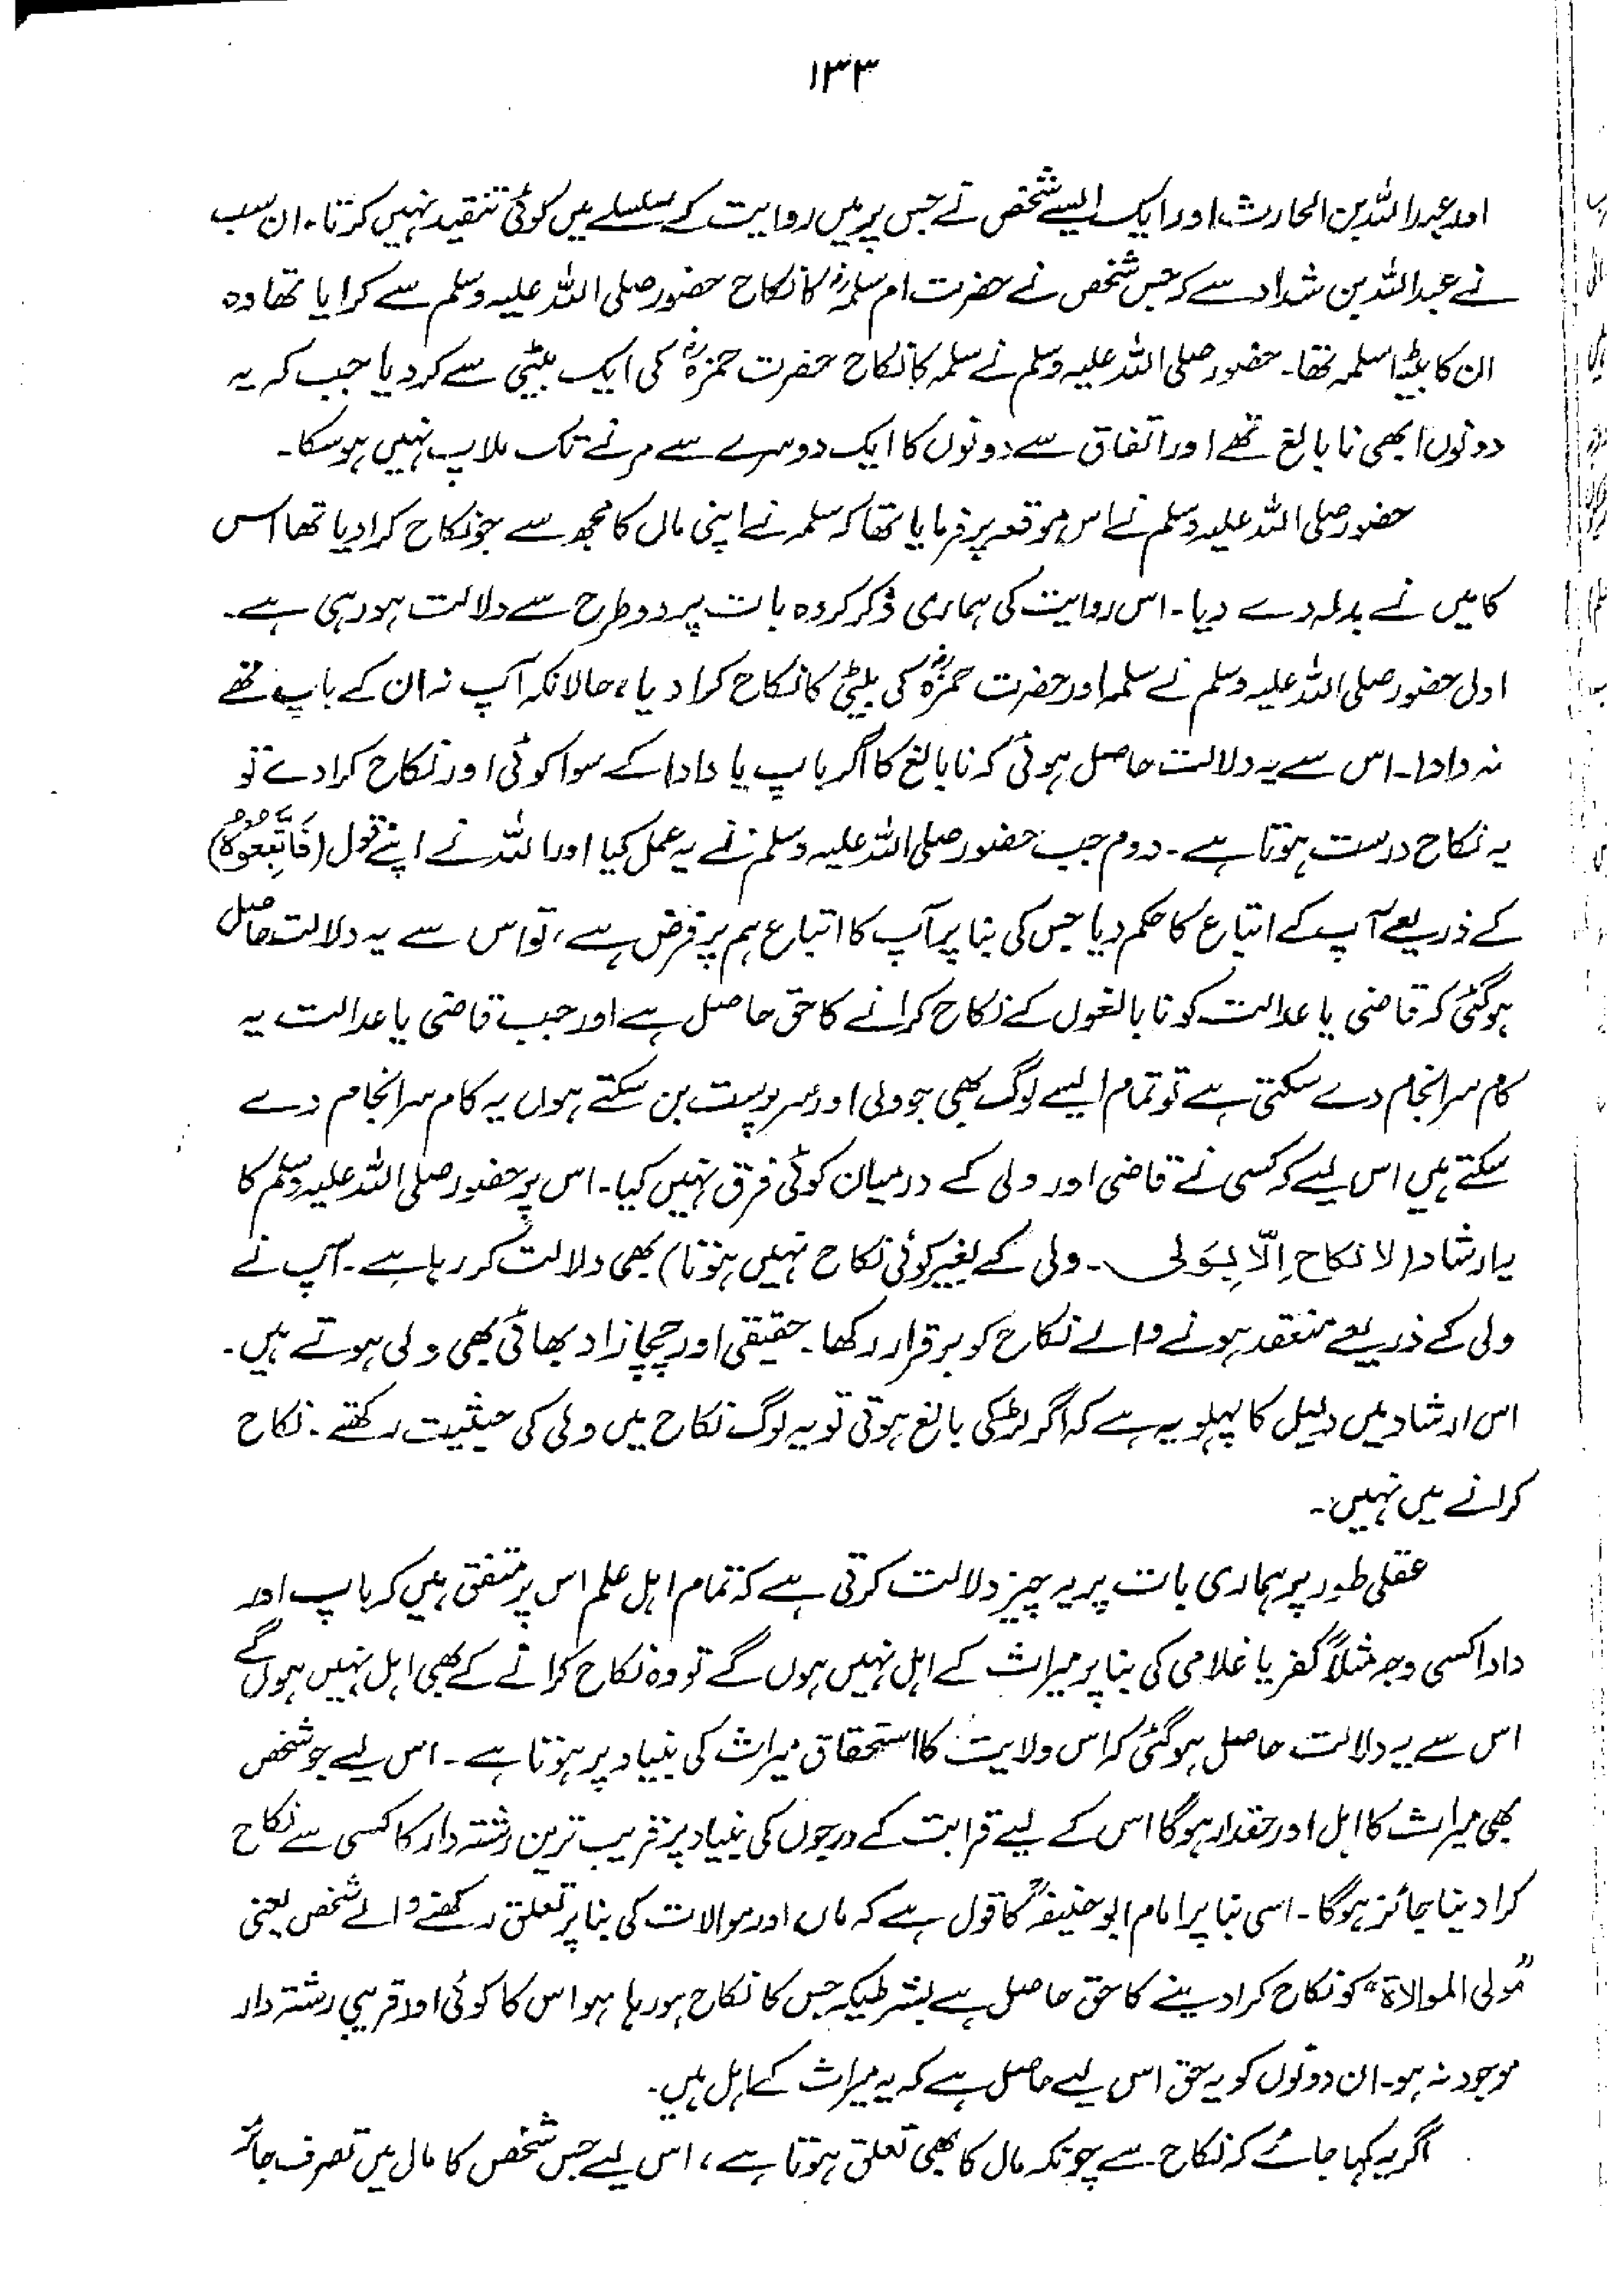 ۱۳۳
اور عبداللہ بن الحارث اور ایک ایسے شخص نے جس پر میں روایت کے سلسلے میں کوئی تنقید نہیں کرتا، ان سب
نے عبداللہ بن شداد سے کہ جس شخص نے حضرت ام سلمہؓ کا نکاح حضور صلی اللہ علیہ وسلم سے کرایا تھا وہ
ان کا بیٹا سلمہ تھا۔ حضور صلی اللہ علیہ وسلم نے سلمہ کا نکاح حضرت حمزہؓ کی ایک بیٹی سے کردیا جب کہ یہ
دونوں ابھی نابالغ تھے اور اتفاق سے دونوں کا ایک دوسرے سے مرنے تک ملاپ نہیں ہوسکا۔
حضور صلی اللہ علیہ وسلم نے اس موقعہ پر فرمایا تھا کہ سلمہ نے اپنی ماں کا مجھ سے جو نکاح کرا دیا تھا اس
کا میں نے بدلہ دے دیا۔ اس روایت کی ہماری ذکر کردہ بات پر دو طرح سے دلالت ہو رہی ہے۔
اول حضور صلی اللہ علیہ وسلم نے سلمہ اور حضرت حمزہؓ کی بیٹی کا نکاح کرا دیا، حالانکہ آپ نہ ان کے باپ تھے
نہ دادا۔ اس سے یہ دلالت حاصل ہوئی کہ نابالغ کا اگر باپ یا دادا کے سوا کوئی اور نکاح کرا دے تو
یہ نکاح درست ہوتا ہے۔ دوم جب حضور صلی اللہ علیہ وسلم نے یہ عمل کیا اور اللہ نے اپنے قول (فَاتَّبِعُوْہُ)
کے ذریعے آپ کے اتباع کا حکم دیا جس کی بنا پر آپ کا اتباع ہم پر فرض ہے، تو اس سے یہ دلالت حاصل
ہوگئی کہ قاضی یا عدالت کو نابالغوں کے نکاح کرانے کا حق حاصل ہے اور جب قاضی یا عدالت یہ
کام سرانجام دے سکتی ہے تو تمام ایسے لوگ بھی جو ولی اور سرپرست بن سکتے ہوں یہ کام سرانجام دے
سکتے ہیں اس لیے کہ کسی نے قاضی اور ولی کے درمیان کوئی فرق نہیں کیا۔ اس پر حضور صلی اللہ علیہ وسلم کا
یہ ارشاد (لا نکاح اِلّا بِوَلی۔ ولی کے بغیر کوئی نکاح نہیں ہوتا) بھی دلالت کر رہا ہے۔ آپ نے
ولی کے ذریعے منعقد ہونے والے نکاح کو برقرار رکھا۔ حقیقی اور چچا زاد بھائی بھی ولی ہوتے ہیں۔
اس ارشاد میں دلیل کا پہلو یہ ہے کہ اگر لڑکی بالغ ہوتی تو یہ لوگ نکاح میں ولی کی حیثیت رکھتے۔ نکاح
کرانے میں نہیں۔
عقلی طور پر ہماری بات پر یہ چیز دلالت کرتی ہے کہ تمام اہل علم اس پر متفق ہیں کہ باپ اور
دادا کسی وجہ مثلاً کفر یا غلامی کی بنا پر میراث کے اہل نہیں ہوں گے تو وہ نکاح کرانے کے بھی اہل نہیں ہوں گے
اس سے یہ دلالت حاصل ہوگئی کہ اس ولایت کا استحقاق میراث کی بنیاد پر ہوتا ہے۔ اس لیے جو شخص
بھی میراث کا اہل اور حقدار ہوگا اس کے لیے قرابت کے درجوں کی بنیاد پر قریب ترین رشتہ دار کا کسی سے نکاح
کرا دینا جائز ہوگا۔ اسی بنا پر امام ابوحنیفہؒ کا قول ہے کہ ماں اور موالات کی بنا پر تعلق رکھنے والے شخص یعنی
"مولی الموالاة" کو نکاح کرا دینے کا حق حاصل ہے بشرطیکہ جس کا نکاح ہو رہا ہو اس کا کوئی اور قریبی رشتہ دار
موجود نہ ہو۔ ان دونوں کو یہ حق اس لیے حاصل ہے کہ یہ میراث کے اہل ہیں۔
اگر یہ کہا جائے کہ نکاح سے چونکہ مال کا بھی تعلق ہوتا ہے، اس لیے جس شخص کا مال میں تصرف جائز